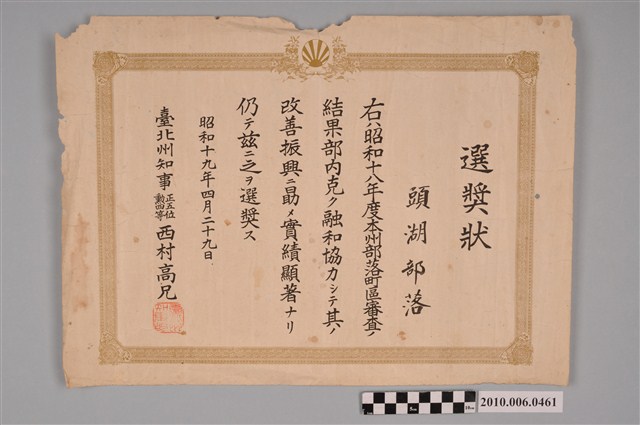 選奬狀
頭湖部落
右ハ昭和十八年度本州部落町區審査ノ
結果部內克ク融和協力シテ其ノ
改善振興ニ勗メ實績顯著ナリ
仍テ玆ニ之ヲ選奬ス
昭和十九年四月二十九日
臺北州知事 正五位勳四等 西村高兄
5cm
10cm
2010.006.0461